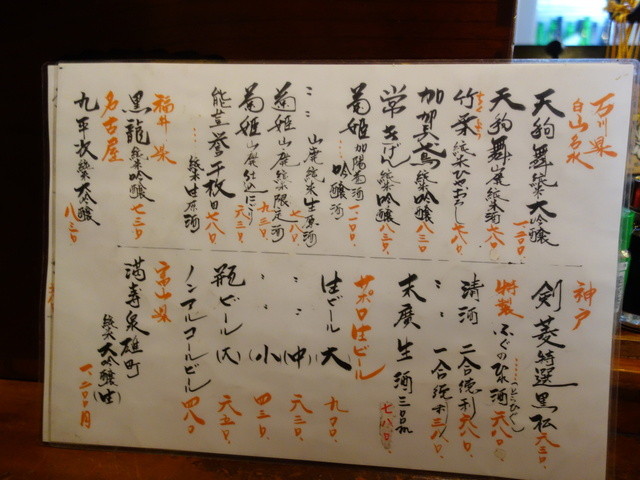 石川県
白山名水
天狗舞 純米大吟醸
一、二〇〇
天狗舞 山廃純米酒
七八〇
竹葉 純米ひやおろし
七八〇
加賀鳶 純米吟醸
八三〇
常きげん 純米吟醸
八三〇
菊姫 加陽菊酒
吟醸酒
一、一〇〇
〃 〃 山廃純米生原酒
七八〇
菊姫 山廃純米限定酒
九三〇
菊姫 山廃仕込にごり
六三〇
能登誉 千枚田
純米生原酒
七八〇
福井県
黒龍 純米吟醸
七三〇
名古屋
九平次 純米大吟醸
八三〇
神戸
剣菱 特選黒松
六三〇
特製
ふぐのひれ酒
六八〇
清酒 二合徳利
六八〇
〃 一合徳利
三八〇
末廣生酒 300ml
七八〇
サッポロ生ビール
生ビール 大
九〇〇
〃 (中)
六三〇
〃 (小)
四三〇
瓶ビール (大)
六五〇
ノンアルコールビール
四八〇
富山県
満寿泉 雄町
純米大吟醸(生)
一、二〇〇円